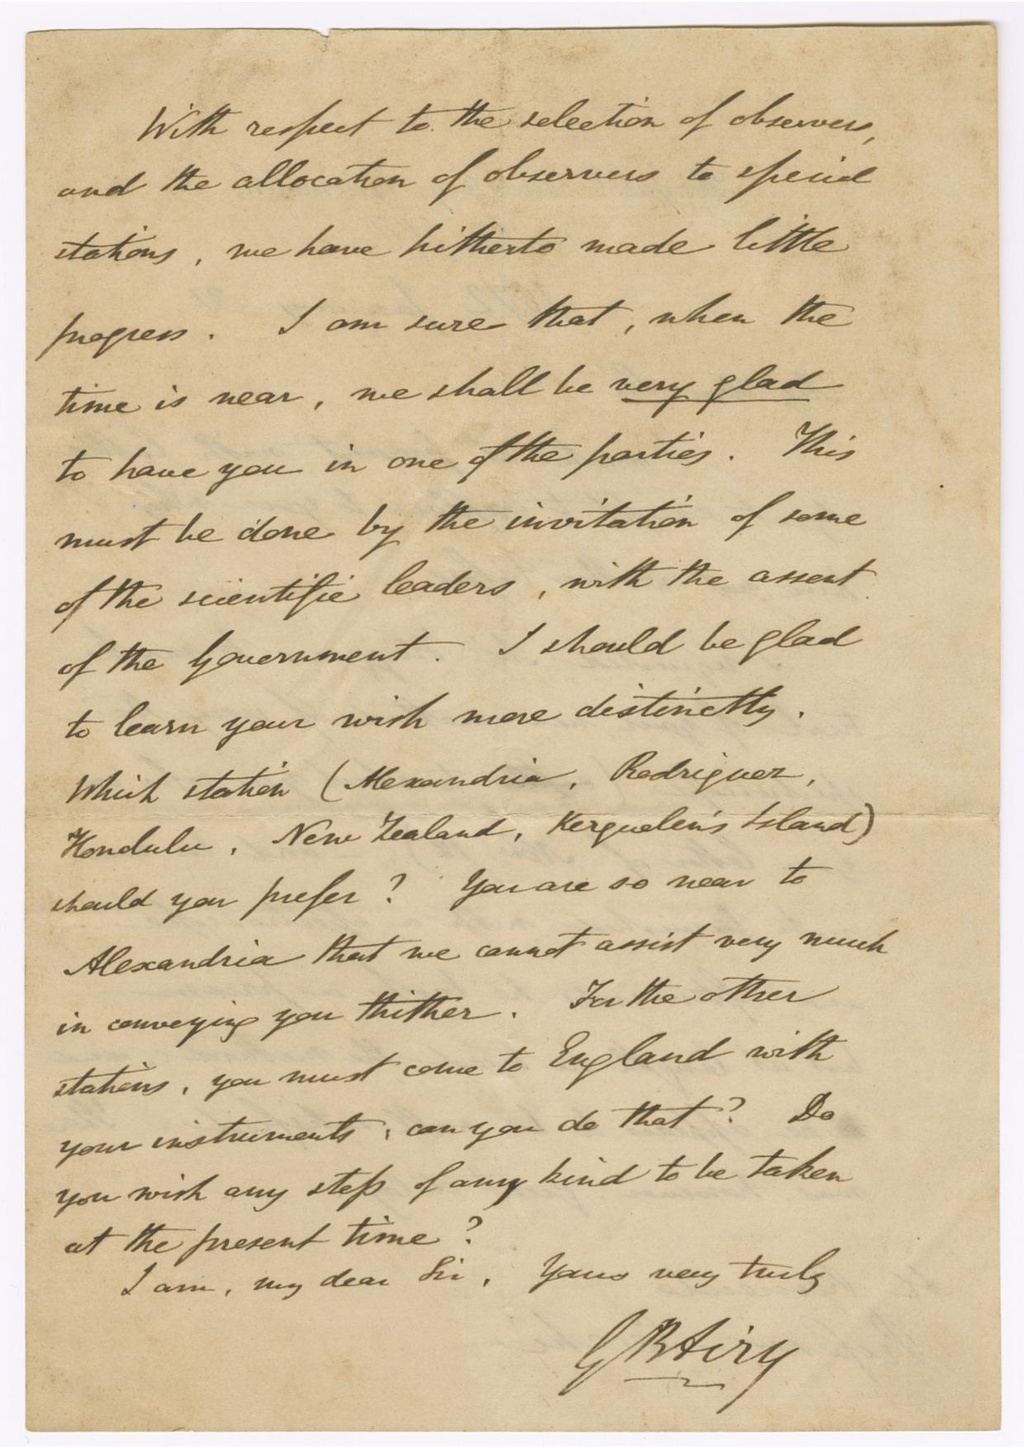 With respect to the selection of observers,
and the allocation of observers to special
stations, we have hitherto made little
progress. I am sure that, when the
time is near, we shall be very glad
to have you in one of the parties. This
must be done by the invitation of some
of the scientific leaders, with the assent
of the Government. I should be glad
to learn your wish more distinctly.
Which station (Alexandria, Rodriguez,
Honolulu, New Zealand, Kerguelen's Island)
should you prefer? You are so near to
Alexandria that we cannot assist very much
in conveying you thither. For the other
stations, you must come to England with
your instruments; can you do that? Do
you wish any step of any kind to be taken
at the present time?
I am, my dear Sir, Yours very truly
G B Airy